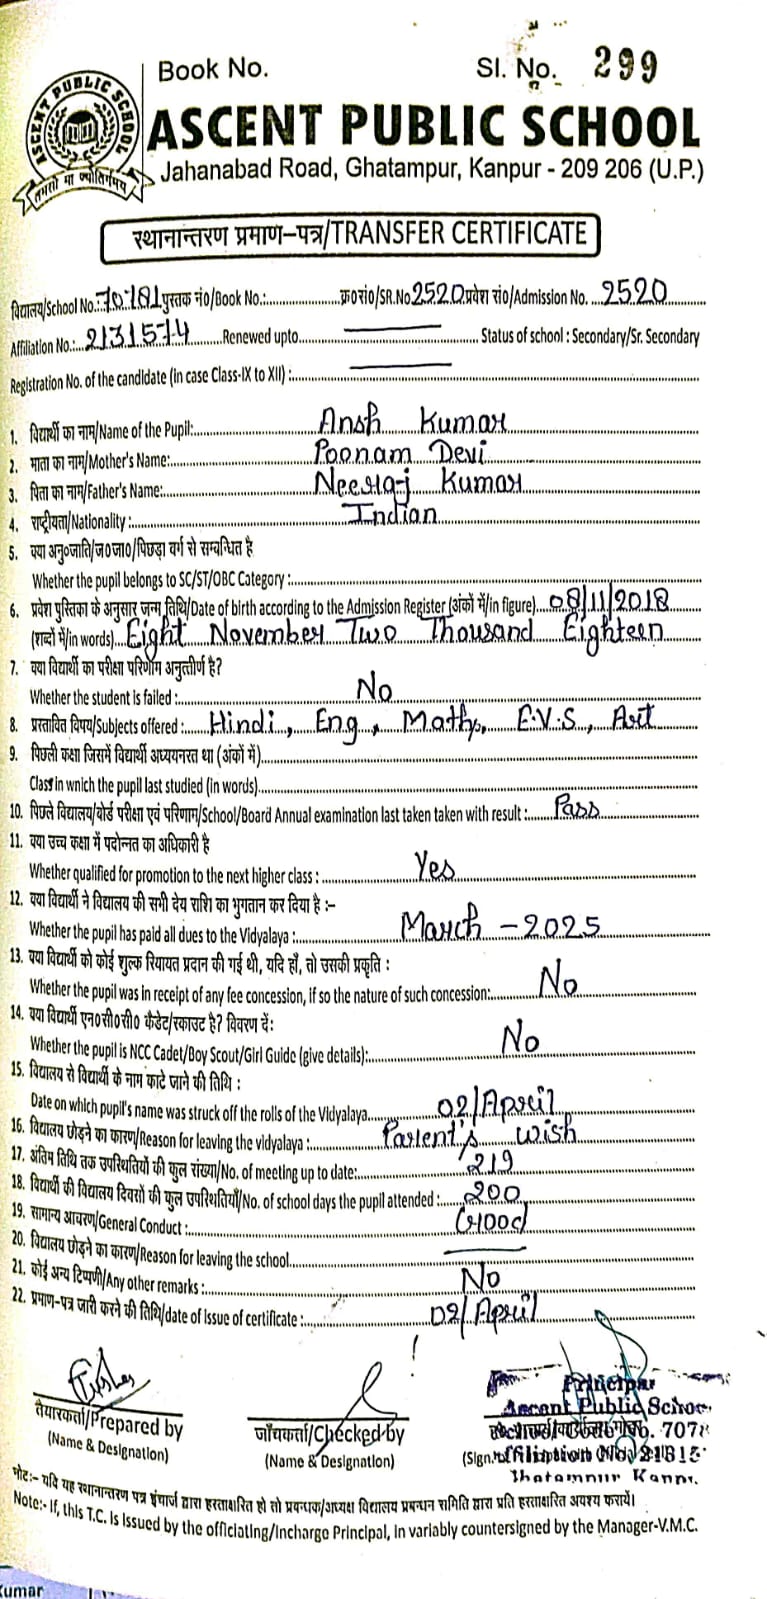 Book No. Sl. No. 299
ASCENT PUBLIC SCHOOL
तमसो मा ज्योतिर्गमय
ASCENT PUBLIC SCHOOL
Jahanabad Road, Ghatampur, Kanpur - 209 206 (U.P.)
स्थानान्तरण प्रमाण-पत्र/TRANSFER CERTIFICATE
विद्यालय/School No.:70781 पुस्तक नं०/Book No.:.......... क्र०सं०/SR.No 2520 प्रवेश सं०/Admission No. ...2520
Affiliation No.:...2131574......Renewed upto.......... Status of school : Secondary/Sr. Secondary
Registration No. of the candidate (in case Class-IX to XII) :..........
1. विद्यार्थी का नाम/Name of the Pupil:..........Ansh Kumar
2. माता का नाम/Mother's Name:..........Poonam Devi
3. पिता का नाम/Father's Name:..........Neeraj Kumar
4. राष्ट्रीयता/Nationality :..........Indian
5. क्या अनु०जाति/ज०जा०/पिछड़ा वर्ग से सम्बन्धित है
Whether the pupil belongs to SC/ST/OBC Category :..........
6. प्रवेश पुस्तिका के अनुसार जन्म तिथि/Date of birth according to the Admission Register (अंकों में/in figure)...08/11/2018
(शब्दों में/in words)...Eight November Two Thousand Eighteen
7. क्या विद्यार्थी का परीक्षा परिणाम अनुत्तीर्ण है?
Whether the student is failed :..........No
8. प्रस्तावित विषय/Subjects offered :...Hindi, Eng, Math, E.V.S, Art
9. पिछली कक्षा जिसमें विद्यार्थी अध्ययनरत था (अंकों में)..........
Class in wnich the pupil last studied (in words)..........
10. पिछले विद्यालय/बोर्ड परीक्षा एवं परिणाम/School/Board Annual examination last taken taken with result :......Pass
11. क्या उच्च कक्षा में पदोन्नत का अधिकारी है
Whether qualified for promotion to the next higher class :..........Yes
12. क्या विद्यार्थी ने विद्यालय की सभी देय राशि का भुगतान कर दिया है :-
Whether the pupil has paid all dues to the Vidyalaya :..........March - 2025
13. क्या विद्यार्थी को कोई शुल्क रियायत प्रदान की गई थी, यदि हाँ, तो उसकी प्रकृति :
Whether the pupil was in receipt of any fee concession, if so the nature of such concession:..........No
14. क्या विद्यार्थी एन०सी०सी० कैडेट/स्काउट है? विवरण दें:
Whether the pupil is NCC Cadet/Boy Scout/Girl Guide (give details):..........No
15. विद्यालय से विद्यार्थी के नाम काटे जाने की तिथि :
Date on which pupil's name was struck off the rolls of the Vidyalaya..........02/April
16. विद्यालय छोड़ने का कारण/Reason for leaving the vidyalaya :..........Parent's wish
17. अंतिम तिथि तक उपस्थितियों की कुल संख्या/No. of meeting up to date:..........219
18. विद्यार्थी की विद्यालय दिवसों की कुल उपस्थितियाँ/No. of school days the pupil attended :......200
19. सामान्य आचरण/General Conduct :..........Good
20. विद्यालय छोड़ने का कारण/Reason for leaving the school..........
21. कोई अन्य टिप्पणी/Any other remarks :..........No
22. प्रमाण-पत्र जारी करने की तिथि/date of issue of certificate :..........02/April
Principal
Ascent Public School
तैयारकर्ता/Prepared by जाँचकर्ता/Checked by
(Name & Designation) (Name & Designation) (Sign.
नोट:- यदि यह स्थानान्तरण पत्र इंचार्ज द्वारा हस्ताक्षरित हो तो प्रबन्धक/अध्यक्ष विद्यालय प्रबन्धन समिति द्वारा प्रति हस्ताक्षरित अवश्य करायें।
Note:- If, this T.C. is issued by the officiating/Incharge Principal, in variably countersigned by the Manager-V.M.C.
Kumar